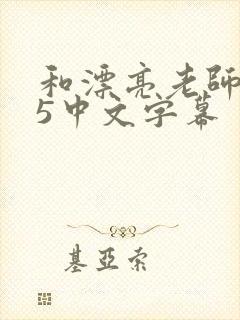 和漂亮老師
5中文字幕
基亚索